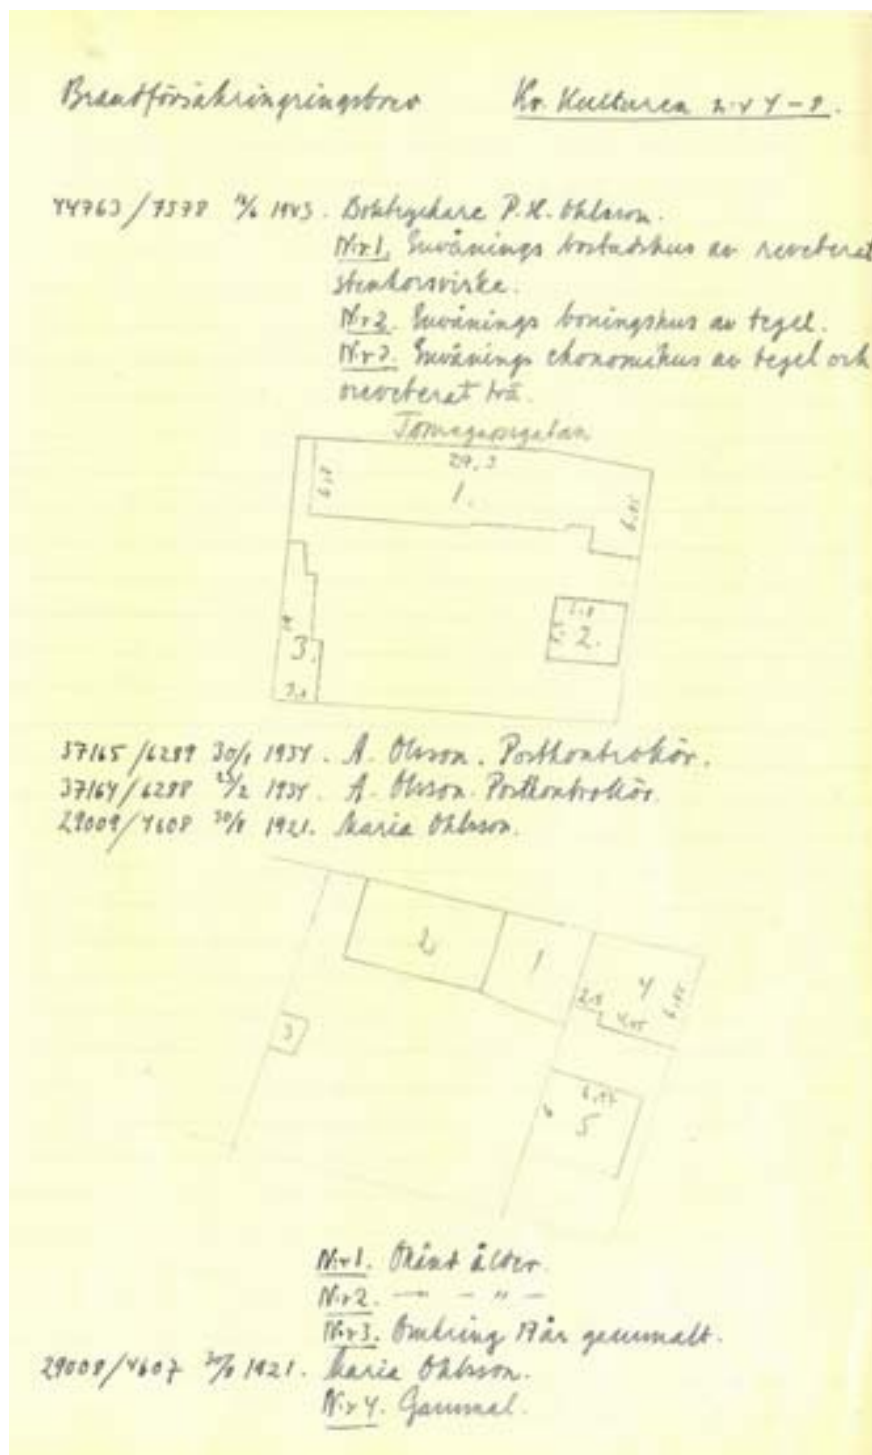 Brandförsäkringringsbrev Kv. Kulturen nr 7-8.
44763/7578 1943. Boktryckare P. H. Ohlsson.
Nr1. Envånings bostadshus av reveterat
stenkorsvirke.
Nr2. Envånings boningshus av tegel.
Nr3. Envånings ekonomihus av tegel och
oreveterat trä.
Tomegapsgatan
29,3
6,8
1.
6,85
5,8
5,5
2.
3.
37165/6289 30/1 1934. A. Olsson. Postkontrollör.
37164/6288 1934. A. Olsson. Postkontrollör.
29009/4608 30/8 1921. Maria Ohlsson.
2
1
4
2,8
4,85
6,85
3
6,47
5
Nr1. Okänd ålder.
Nr2. — - " -
Nr3. Omkring 17 år gammalt.
29008/4607 30/8 1921. Maria Ohlsson.
Nr4. Gammal.